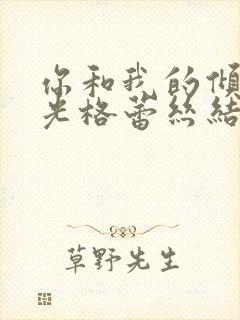 你和我的倾
光格蕾丝結
草野先生